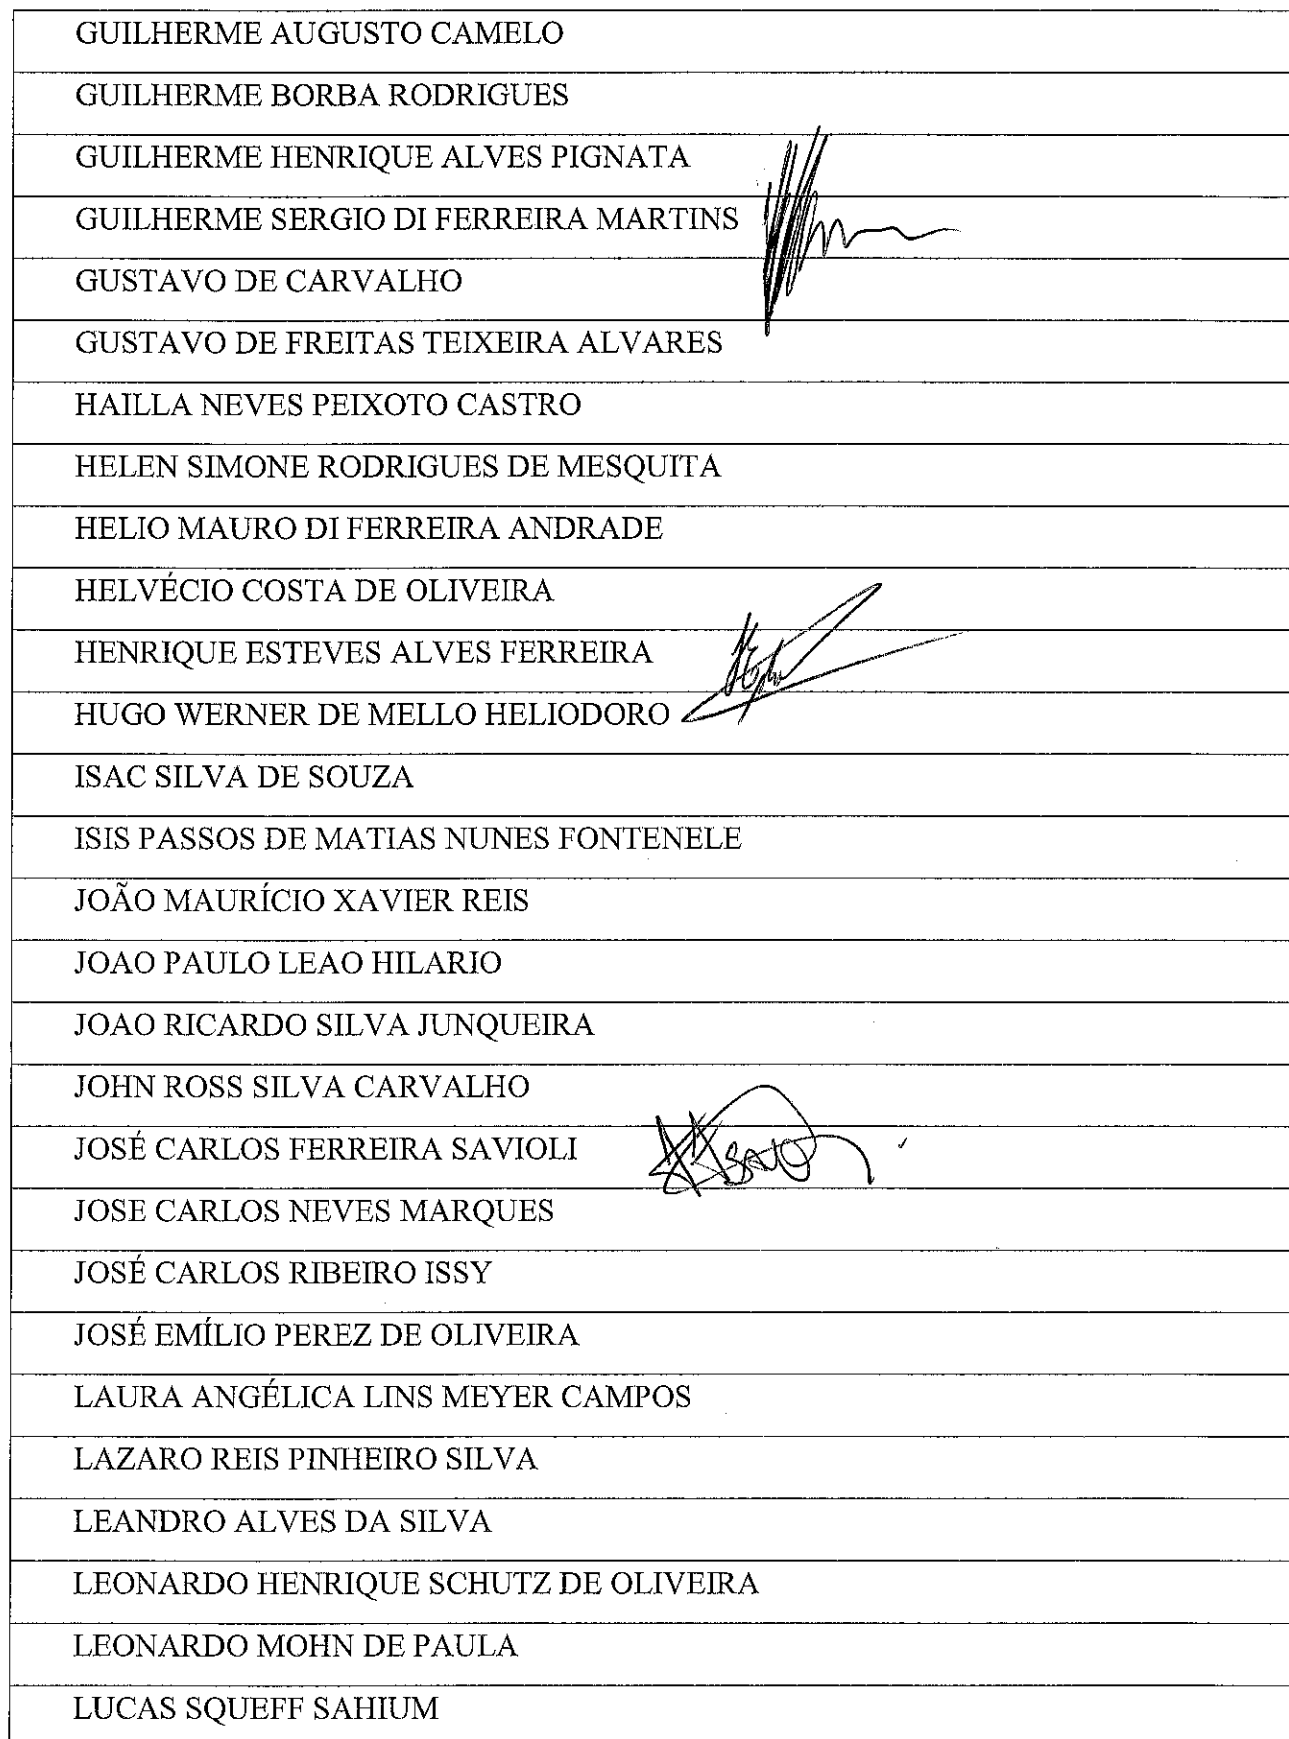 GUILHERME AUGUSTO CAMELO
GUILHERME BORBA RODRIGUES
GUILHERME HENRIQUE ALVES PIGNATA
GUILHERME SERGIO DI FERREIRA MARTINS
GUSTAVO DE CARVALHO
GUSTAVO DE FREITAS TEIXEIRA ALVARES
HAILLA NEVES PEIXOTO CASTRO
HELEN SIMONE RODRIGUES DE MESQUITA
HELIO MAURO DI FERREIRA ANDRADE
HELVÉCIO COSTA DE OLIVEIRA
HENRIQUE ESTEVES ALVES FERREIRA
HUGO WERNER DE MELLO HELIODORO
ISAC SILVA DE SOUZA
ISIS PASSOS DE MATIAS NUNES FONTENELE
JOÃO MAURÍCIO XAVIER REIS
JOAO PAULO LEAO HILARIO
JOAO RICARDO SILVA JUNQUEIRA
JOHN ROSS SILVA CARVALHO
JOSÉ CARLOS FERREIRA SAVIOLI
JOSE CARLOS NEVES MARQUES
JOSÉ CARLOS RIBEIRO ISSY
JOSÉ EMÍLIO PEREZ DE OLIVEIRA
LAURA ANGÉLICA LINS MEYER CAMPOS
LAZARO REIS PINHEIRO SILVA
LEANDRO ALVES DA SILVA
LEONARDO HENRIQUE SCHUTZ DE OLIVEIRA
LEONARDO MOHN DE PAULA
LUCAS SQUEFF SAHIUM